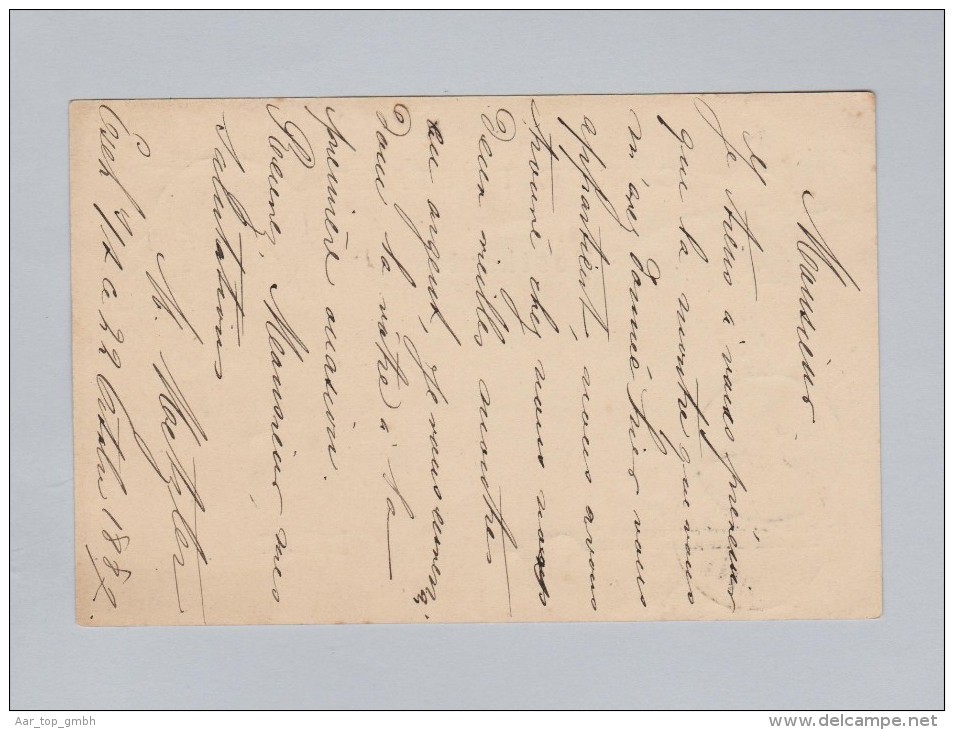 Monsieur.
Je tiens à vous prévenir
que la montre que vous
m'avez donné hier vous
appartient, nous avons
trouvé chez nous nos
deux vieilles montres
en argent, je vous enverrai
donc la vôtre à la
première occasion.
Recevez, Monsieur, mes
Salutations
M. Metzler
le 22 Octobre 1887.
Aar_top_gmbh
www.delcampe.net